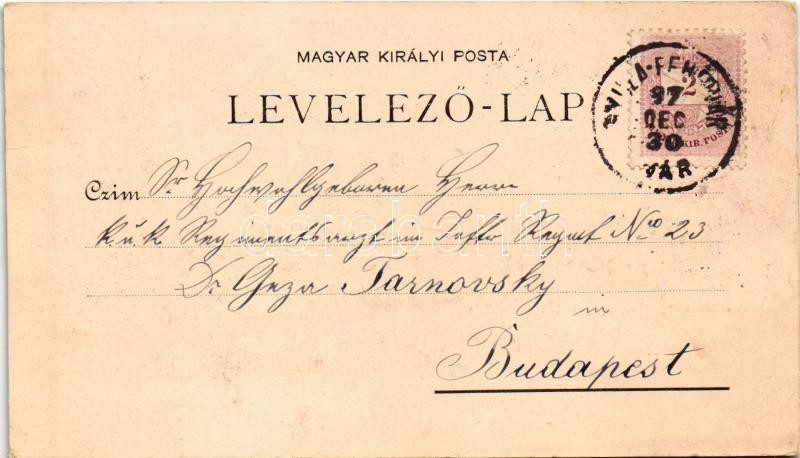 MAGYAR KIRÁLYI POSTA
LEVELEZŐ-LAP
2
KIR. POSTA
GYULA-FEHÉRVÁR
97
DEC
30
VÁR
Czim Sr Hochwohlgeboren Herrn
k. u. k. Regimentsarzt im Inftr Regmt No 23
Dr Geza Tarnovsky
in
Budapest